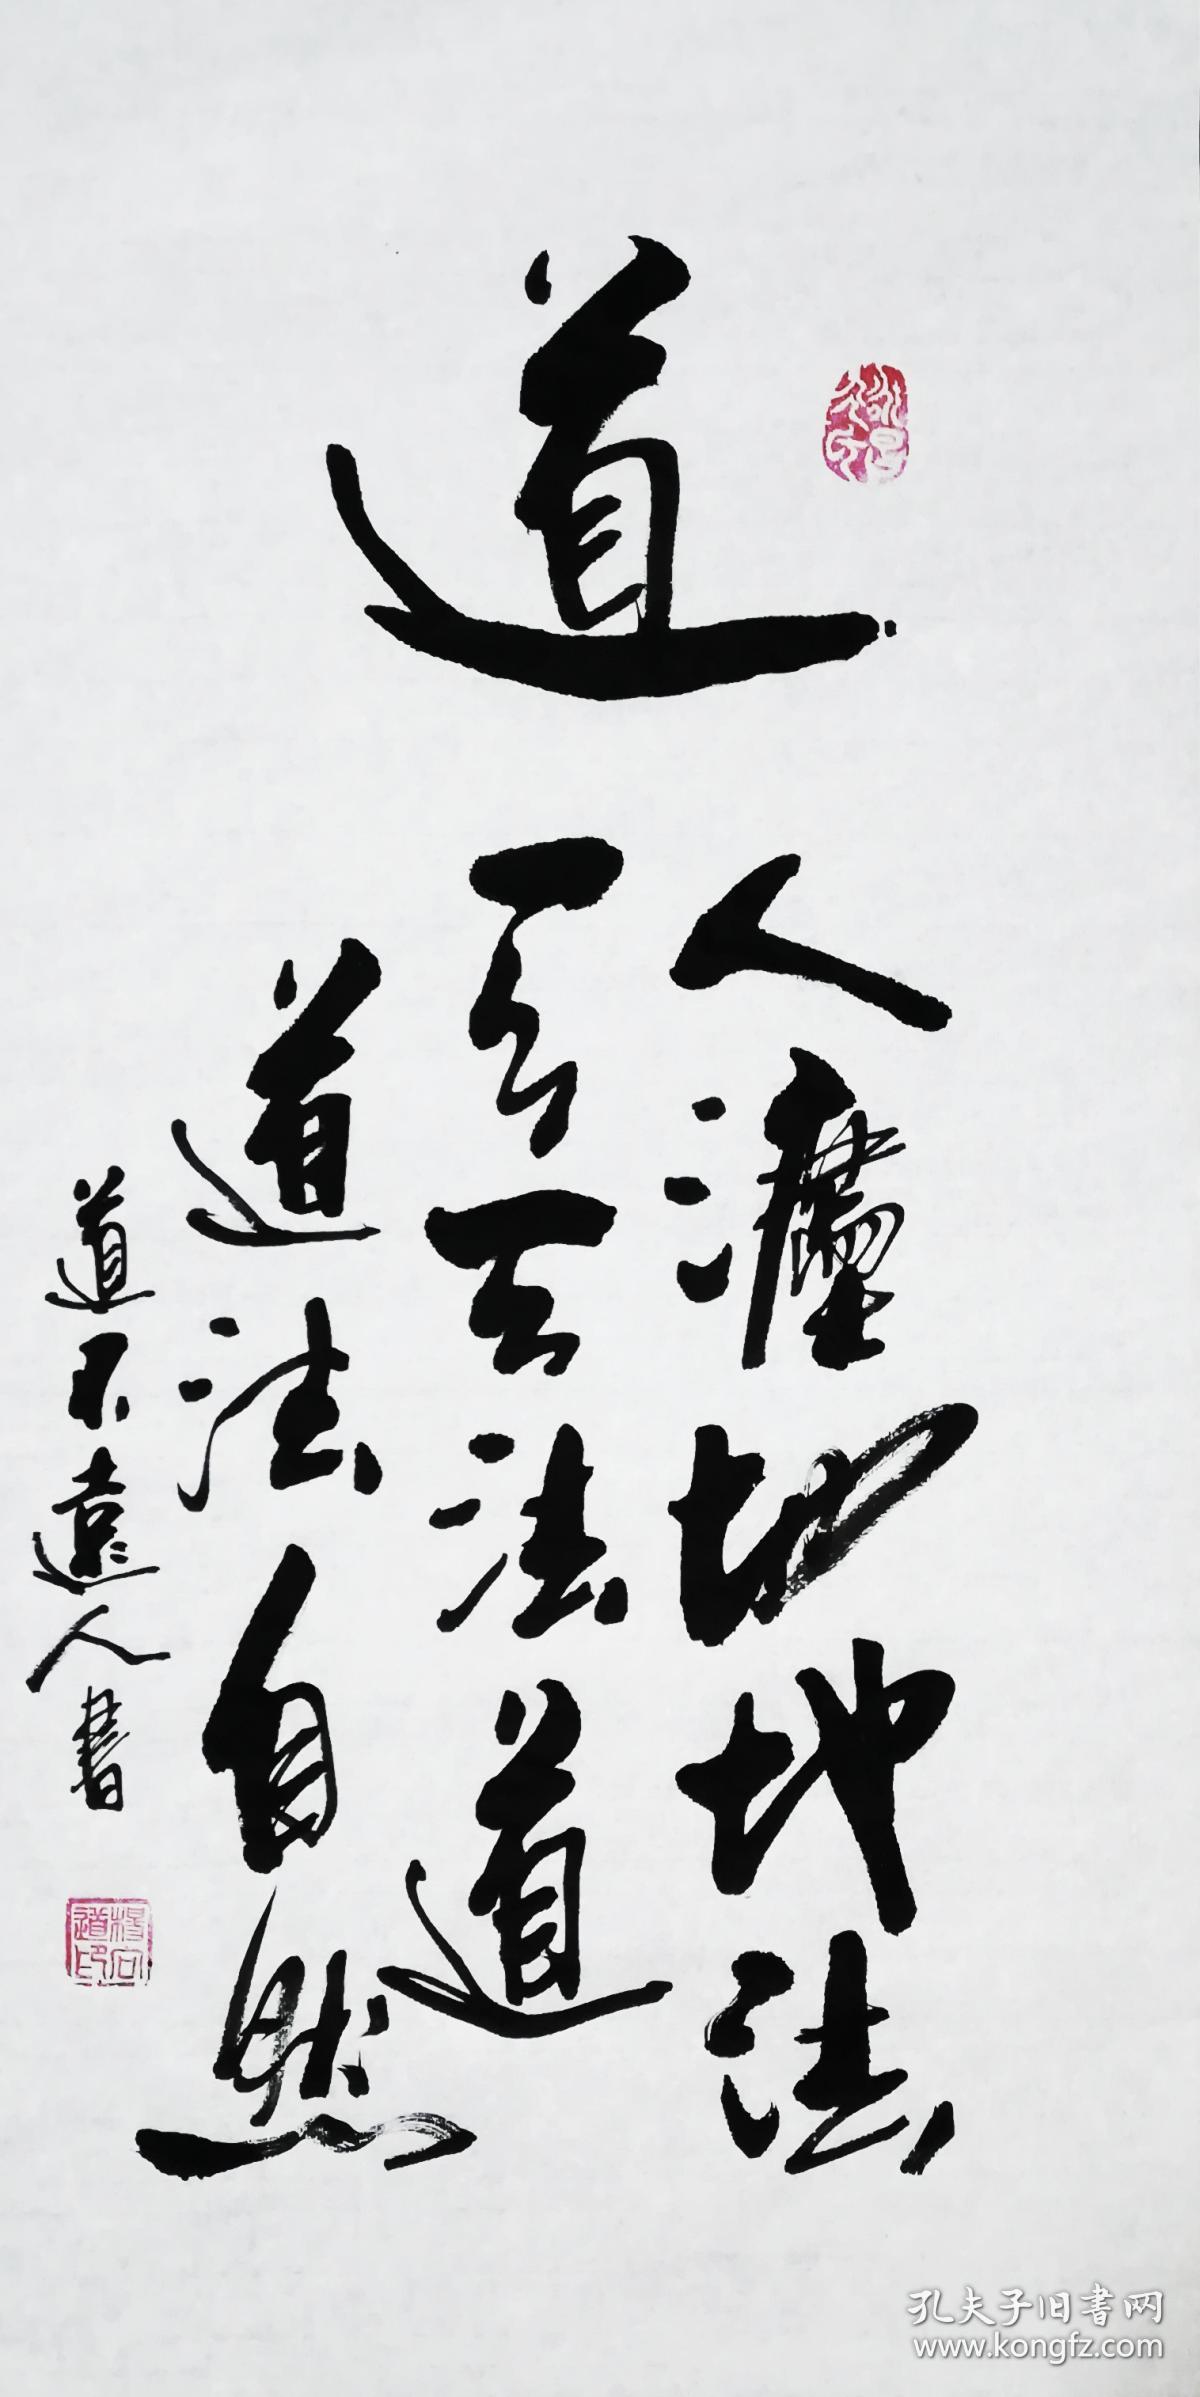 道
人灋地地法
天天法道
道法自然
道不遠人書
楊向道印
孔夫子旧书网
www.kongfz.com